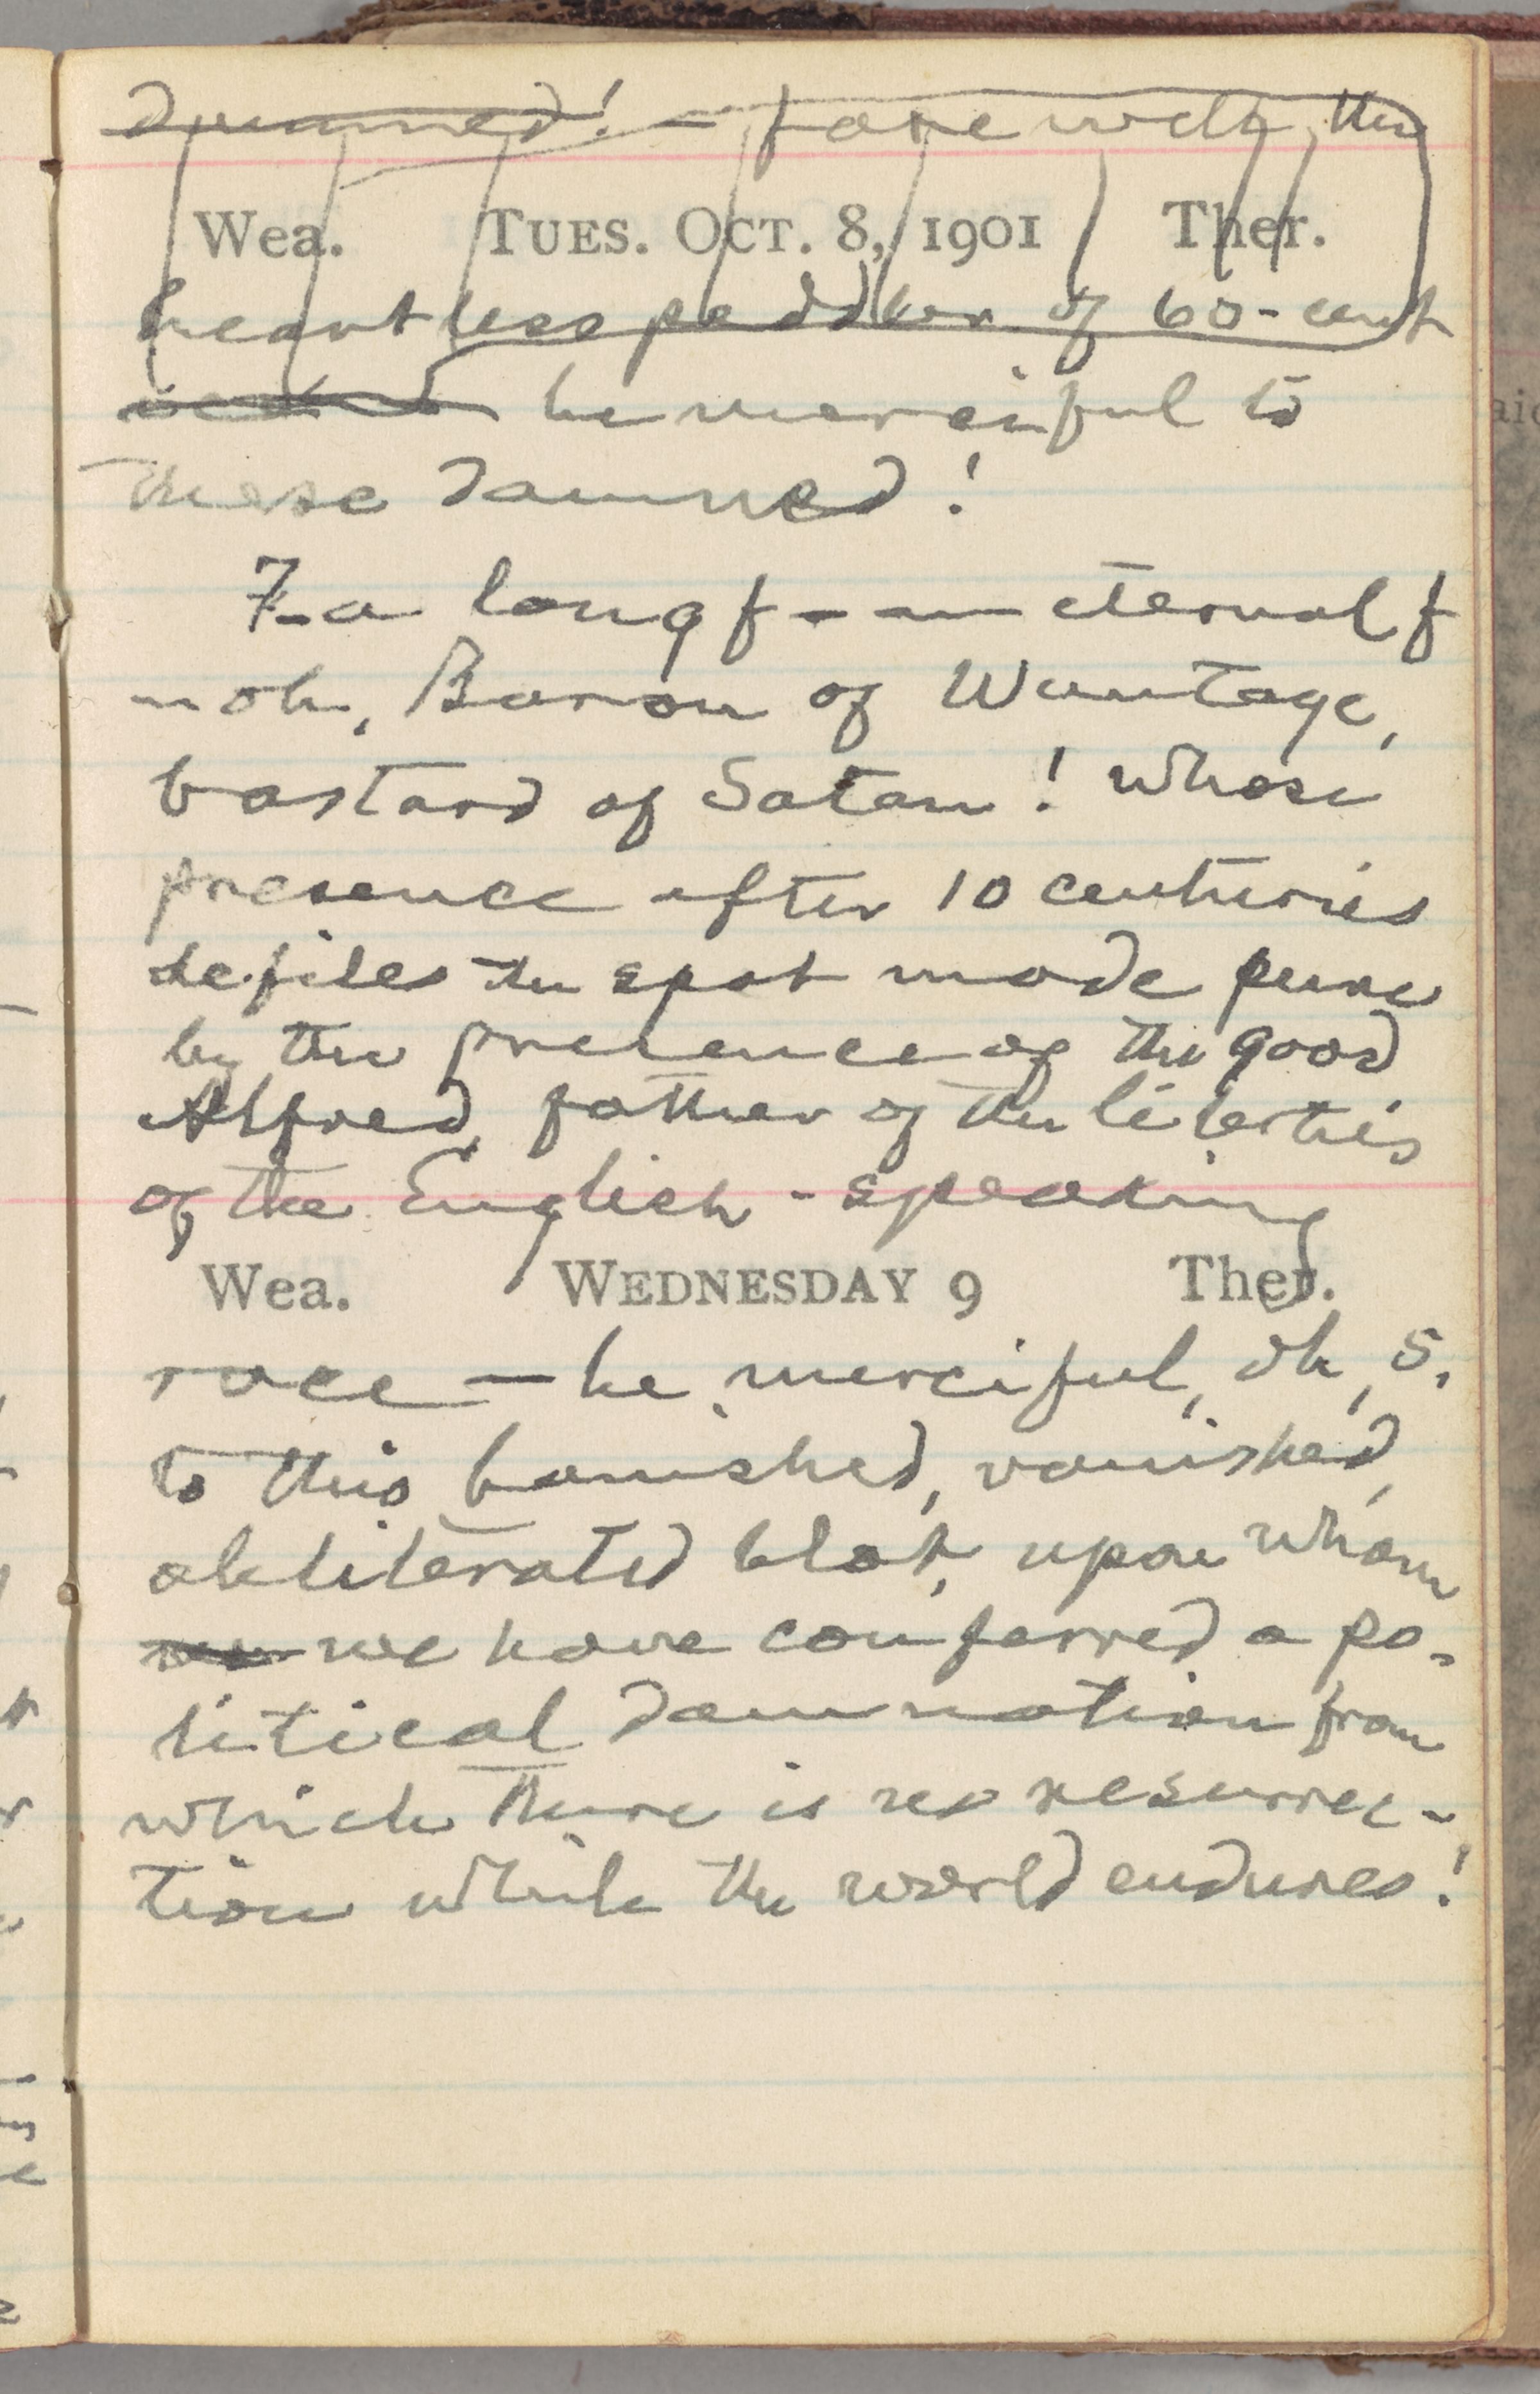 damned! — farewell, thou
Wea. TUES. OCT. 8, 1901 Ther.
heartless peddler of 60-cent
be merciful to
these damned!
7—a long f—an eternal f
—oh, Baron of Wantage,
bastard of Satan! whose
presence after 10 centuries
defiles the spot made pure
by the presence of the good
Alfred, father of the liberties
of the English-speaking
Wea. WEDNESDAY 9 Ther.
race — be merciful, oh, S,
to this banished, vanished,
obliterated blot, upon whom
we have conferred a po-
litical damnation from
which there is no resurrec-
tion while the world endures!